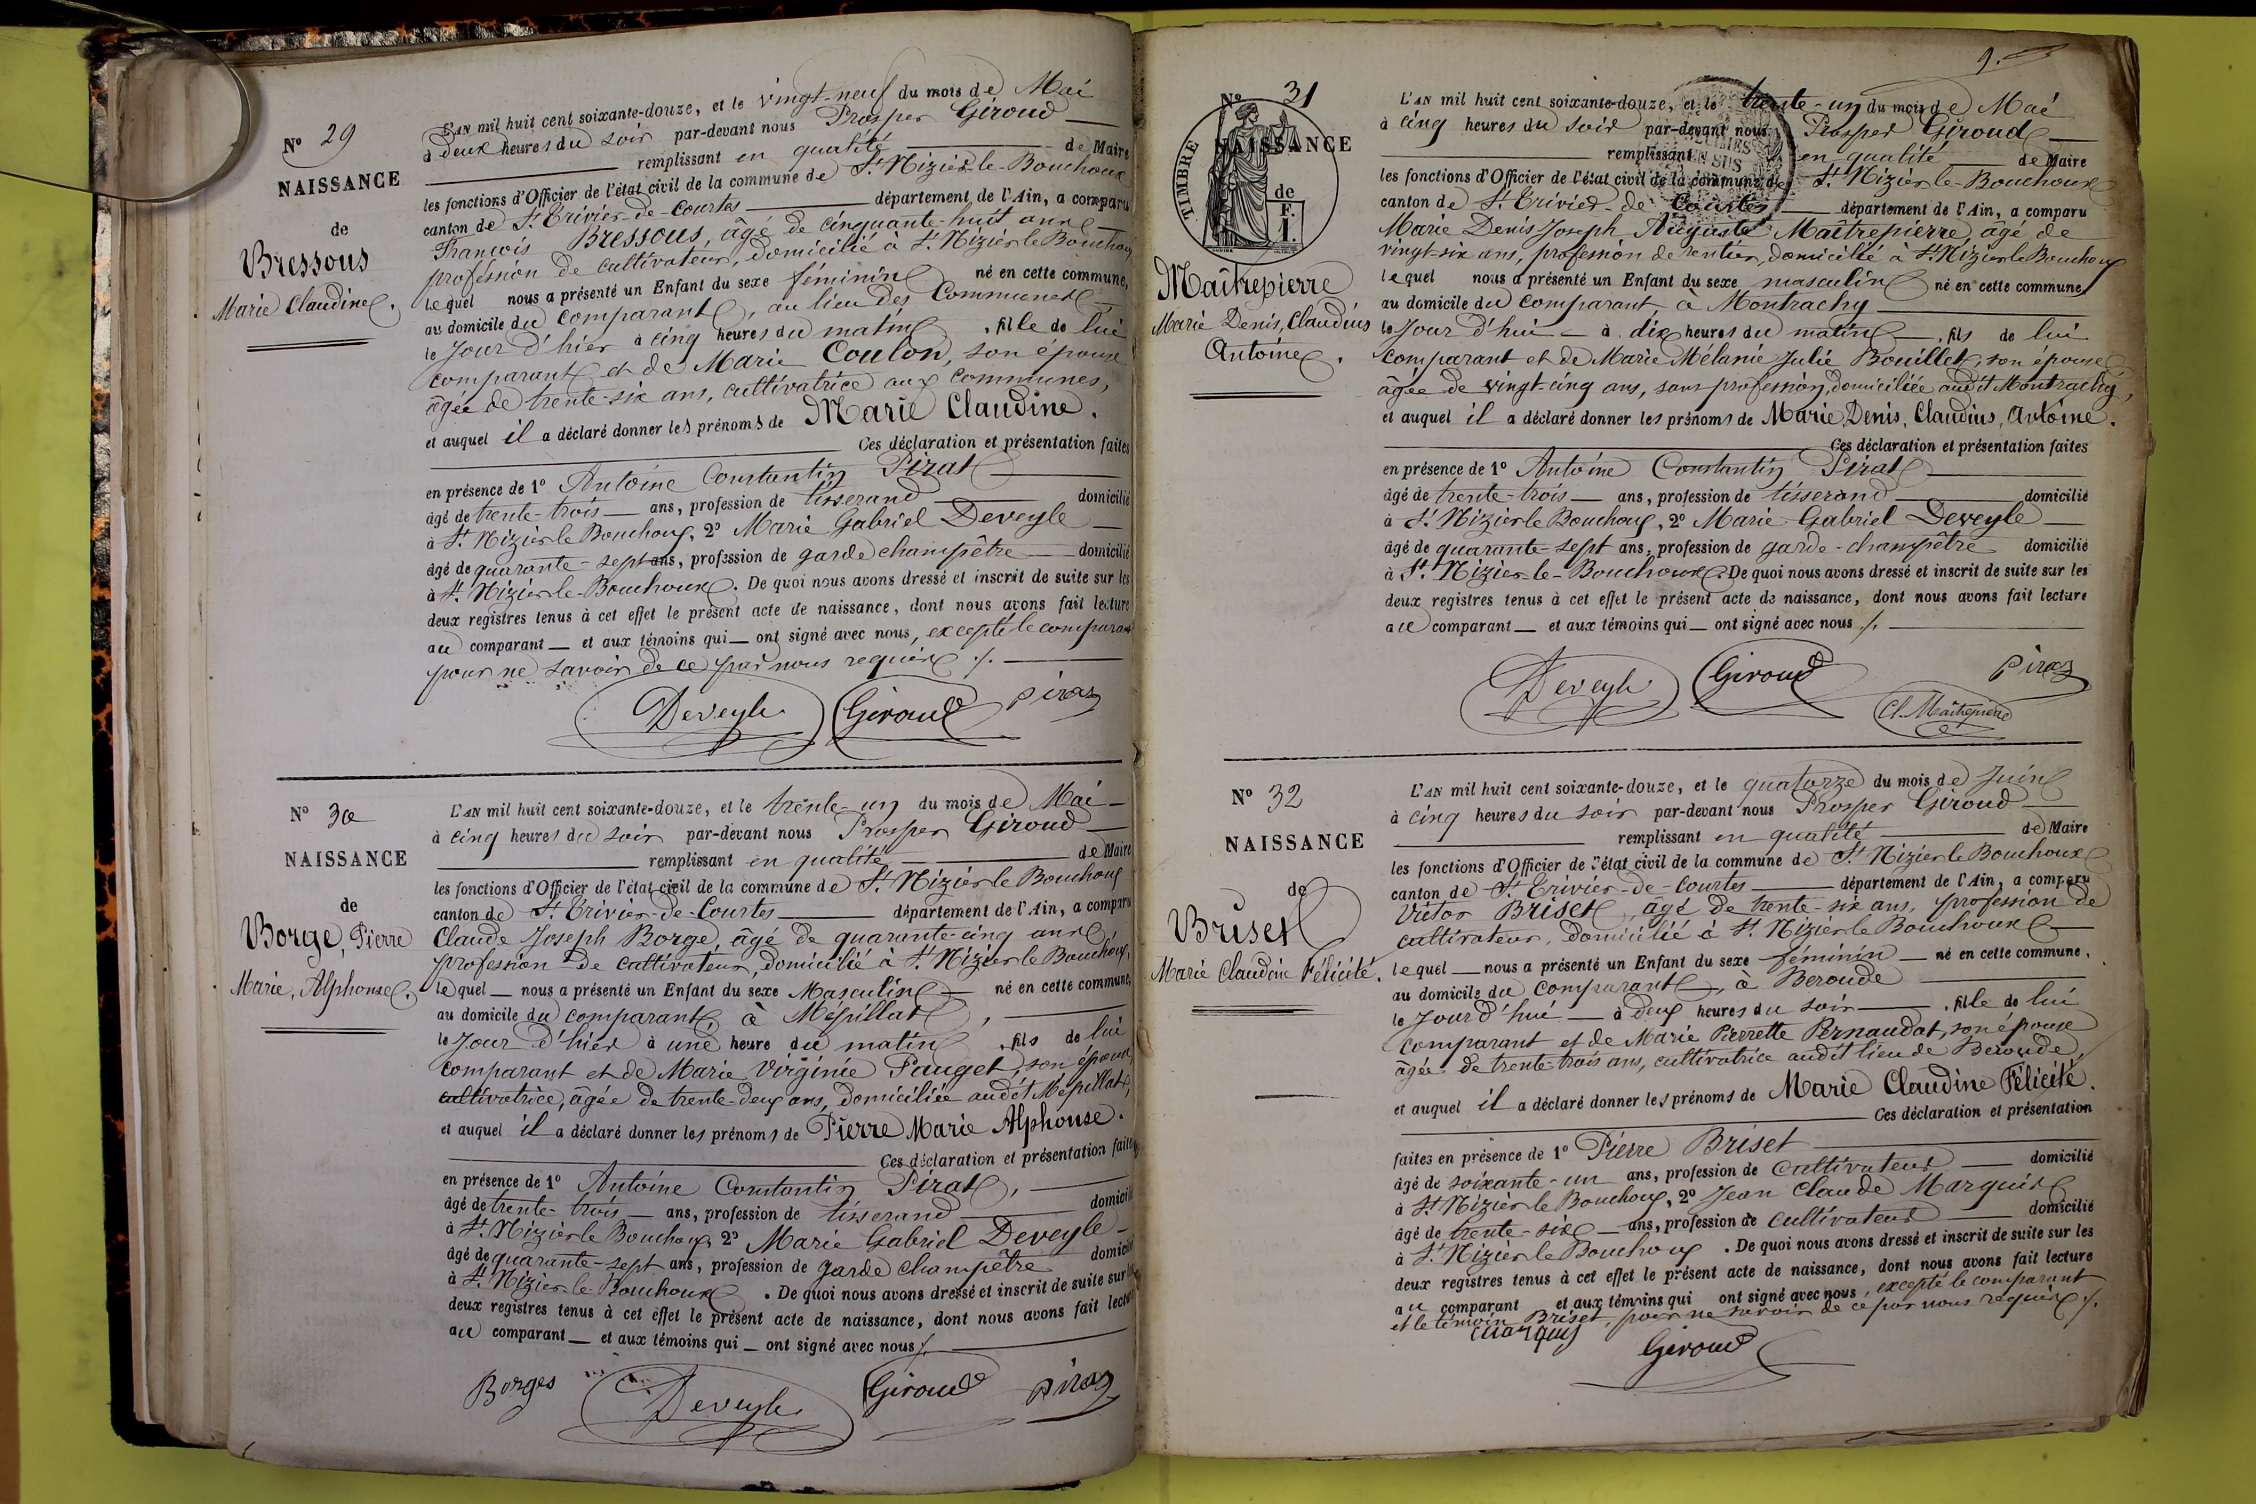 N° 29
NAISSANCE
de
Bressous
Marie Claudine.
L'AN mil huit cent soixante-douze, et le vingt-neuf du mois de Mai
à deux heures du soir par-devant nous Prosper Giroud
remplissant en qualité de Maire
les fonctions d'Officier de l'état civil de la commune de St. Nizier-le-Bouchoux
canton de St. Trivier-de-Courtes département de l'Ain, a comparu
François Bressous, âgé de cinquante-huit ans
profession de cultivateur, domicilié à St. Nizier le Bouchoux
lequel nous a présenté un Enfant du sexe féminin né en cette commune,
au domicile du comparant, au lieu des Communes
le Jour d'hier à cinq heures du matin, fille de lui
comparant et de Marie Coulon, son épouse
âgée de trente-six ans, cultivatrice aux Communes,
et auquel il a déclaré donner les prénoms de Marie Claudine.
Ces déclaration et présentation faites
en présence de 1° Antoine Constantin Pirat
âgé de trente-trois ans, profession de tisserand domicilié
à St. Nizier le Bouchoux, 2° Marie Gabriel Deveyle
âgé de quarante-sept ans, profession de garde champêtre domicilié
à St. Nizier-le-Bouchoux. De quoi nous avons dressé et inscrit de suite sur les
deux registres tenus à cet effet le présent acte de naissance, dont nous avons fait lecture
au comparant et aux témoins qui ont signé avec nous, excepté le comparant
pour ne savoir de ce par nous requis ./.
Deveyle Giroud Pirat
N° 30
NAISSANCE
de
Borge, Pierre
Marie, Alphonse.
L'AN mil huit cent soixante-douze, et le trente-un du mois de Mai
à cinq heures du soir par-devant nous Prosper Giroud
remplissant en qualité de Maire
les fonctions d'Officier de l'état civil de la commune de St. Nizier le Bouchoux
canton de St. Trivier-de-Courtes département de l'Ain, a comparu
Claude Joseph Borge, âgé de quarante-cinq ans
profession de cultivateur, domicilié à St. Nizier le Bouchoux,
lequel nous a présenté un Enfant du sexe Masculin né en cette commune,
au domicile du comparant, à Mépillat,
le Jour d'hier à une heure du matin, fils de lui
comparant et de Marie Virginie Pauget, son épouse,
cultivatrice, âgée de trente-deux ans, domiciliée audit Mépillat,
et auquel il a déclaré donner les prénoms de Pierre Marie Alphonse.
Ces déclaration et présentation faites
en présence de 1° Antoine Constantin Pirat,
âgé de trente-trois ans, profession de tisserand domicilié
à St. Nizier le Bouchoux, 2° Marie Gabriel Deveyle
âgé de quarante-sept ans, profession de garde champêtre domicilié
à St. Nizier-le-Bouchoux. De quoi nous avons dressé et inscrit de suite sur les
deux registres tenus à cet effet le présent acte de naissance, dont nous avons fait lecture
au comparant et aux témoins qui ont signé avec nous ./.
Borges Deveyle Giroud Pirat
9.
N° 31
NAISSANCE
TIMBRE
de
F.
I.
Maîtrepierre
Marie Denis, Claudius
Antoine.
L'AN mil huit cent soixante-douze, et le trente-un du mois de Mai
à cinq heures du soir par-devant nous Prosper Giroud
remplissant en qualité de Maire
les fonctions d'Officier de l'état civil de la commune de St. Nizier-le-Bouchoux
canton de St. Trivier-de-Courtes département de l'Ain, a comparu
Marie Denis Joseph Auguste Maîtrepierre, âgé de
vingt-six ans, profession de rentier, domicilié à St. Nizier le Bouchoux
lequel nous a présenté un Enfant du sexe masculin né en cette commune,
au domicile du comparant, à Montrachy
le Jour d'hui à dix heures du matin, fils de lui
comparant et de Marie Mélanie Julie Bouillet, son épouse
âgée de vingt-cinq ans, sans profession, domiciliée audit Montrachy,
et auquel il a déclaré donner les prénoms de Marie, Denis, Claudius, Antoine.
Ces déclaration et présentation faites
en présence de 1° Antoine Constantin Pirat
âgé de trente-trois ans, profession de tisserand domicilié
à St. Nizier le Bouchoux, 2° Marie Gabriel Deveyle
âgé de quarante-sept ans, profession de garde-champêtre domicilié
à St. Nizier-le-Bouchoux. De quoi nous avons dressé et inscrit de suite sur les
deux registres tenus à cet effet le présent acte de naissance, dont nous avons fait lecture
au comparant et aux témoins qui ont signé avec nous ./.
Deveyle Giroud Pirat
Cl. Maîtrepierre
N° 32
NAISSANCE
de
Briset
Marie Claudine Félicité.
L'AN mil huit cent soixante-douze, et le quatorze du mois de Juin
à cinq heures du soir par-devant nous Prosper Giroud
remplissant en qualité de Maire
les fonctions d'Officier de l'état civil de la commune de St. Nizier le Bouchoux
canton de St. Trivier-de-Courtes département de l'Ain, a comparu
Victor Briset, âgé de trente-six ans, profession de
cultivateur, domicilié à St. Nizier le Bouchoux
lequel nous a présenté un Enfant du sexe féminin né en cette commune,
au domicile du comparant, à Beroude
le Jour d'hui à deux heures du soir, fille de lui
comparant et de Marie Pierrette Pernaudat, son épouse
âgée de trente-trois ans, cultivatrice audit lieu de Beroude,
et auquel il a déclaré donner les prénoms de Marie Claudine Félicité.
Ces déclaration et présentation
faites en présence de 1° Pierre Briset
âgé de soixante-un ans, profession de cultivateur domicilié
à St Nizier le Bouchoux, 2° Jean Claude Marquis
âgé de trente-six ans, profession de cultivateur domicilié
à St. Nizier le Bouchoux. De quoi nous avons dressé et inscrit de suite sur les
deux registres tenus à cet effet le présent acte de naissance, dont nous avons fait lecture
au comparant et aux témoins qui ont signé avec nous, excepté le comparant
et le témoin Briset, pour ne savoir de ce par nous requis ./.
Marquis
Giroud